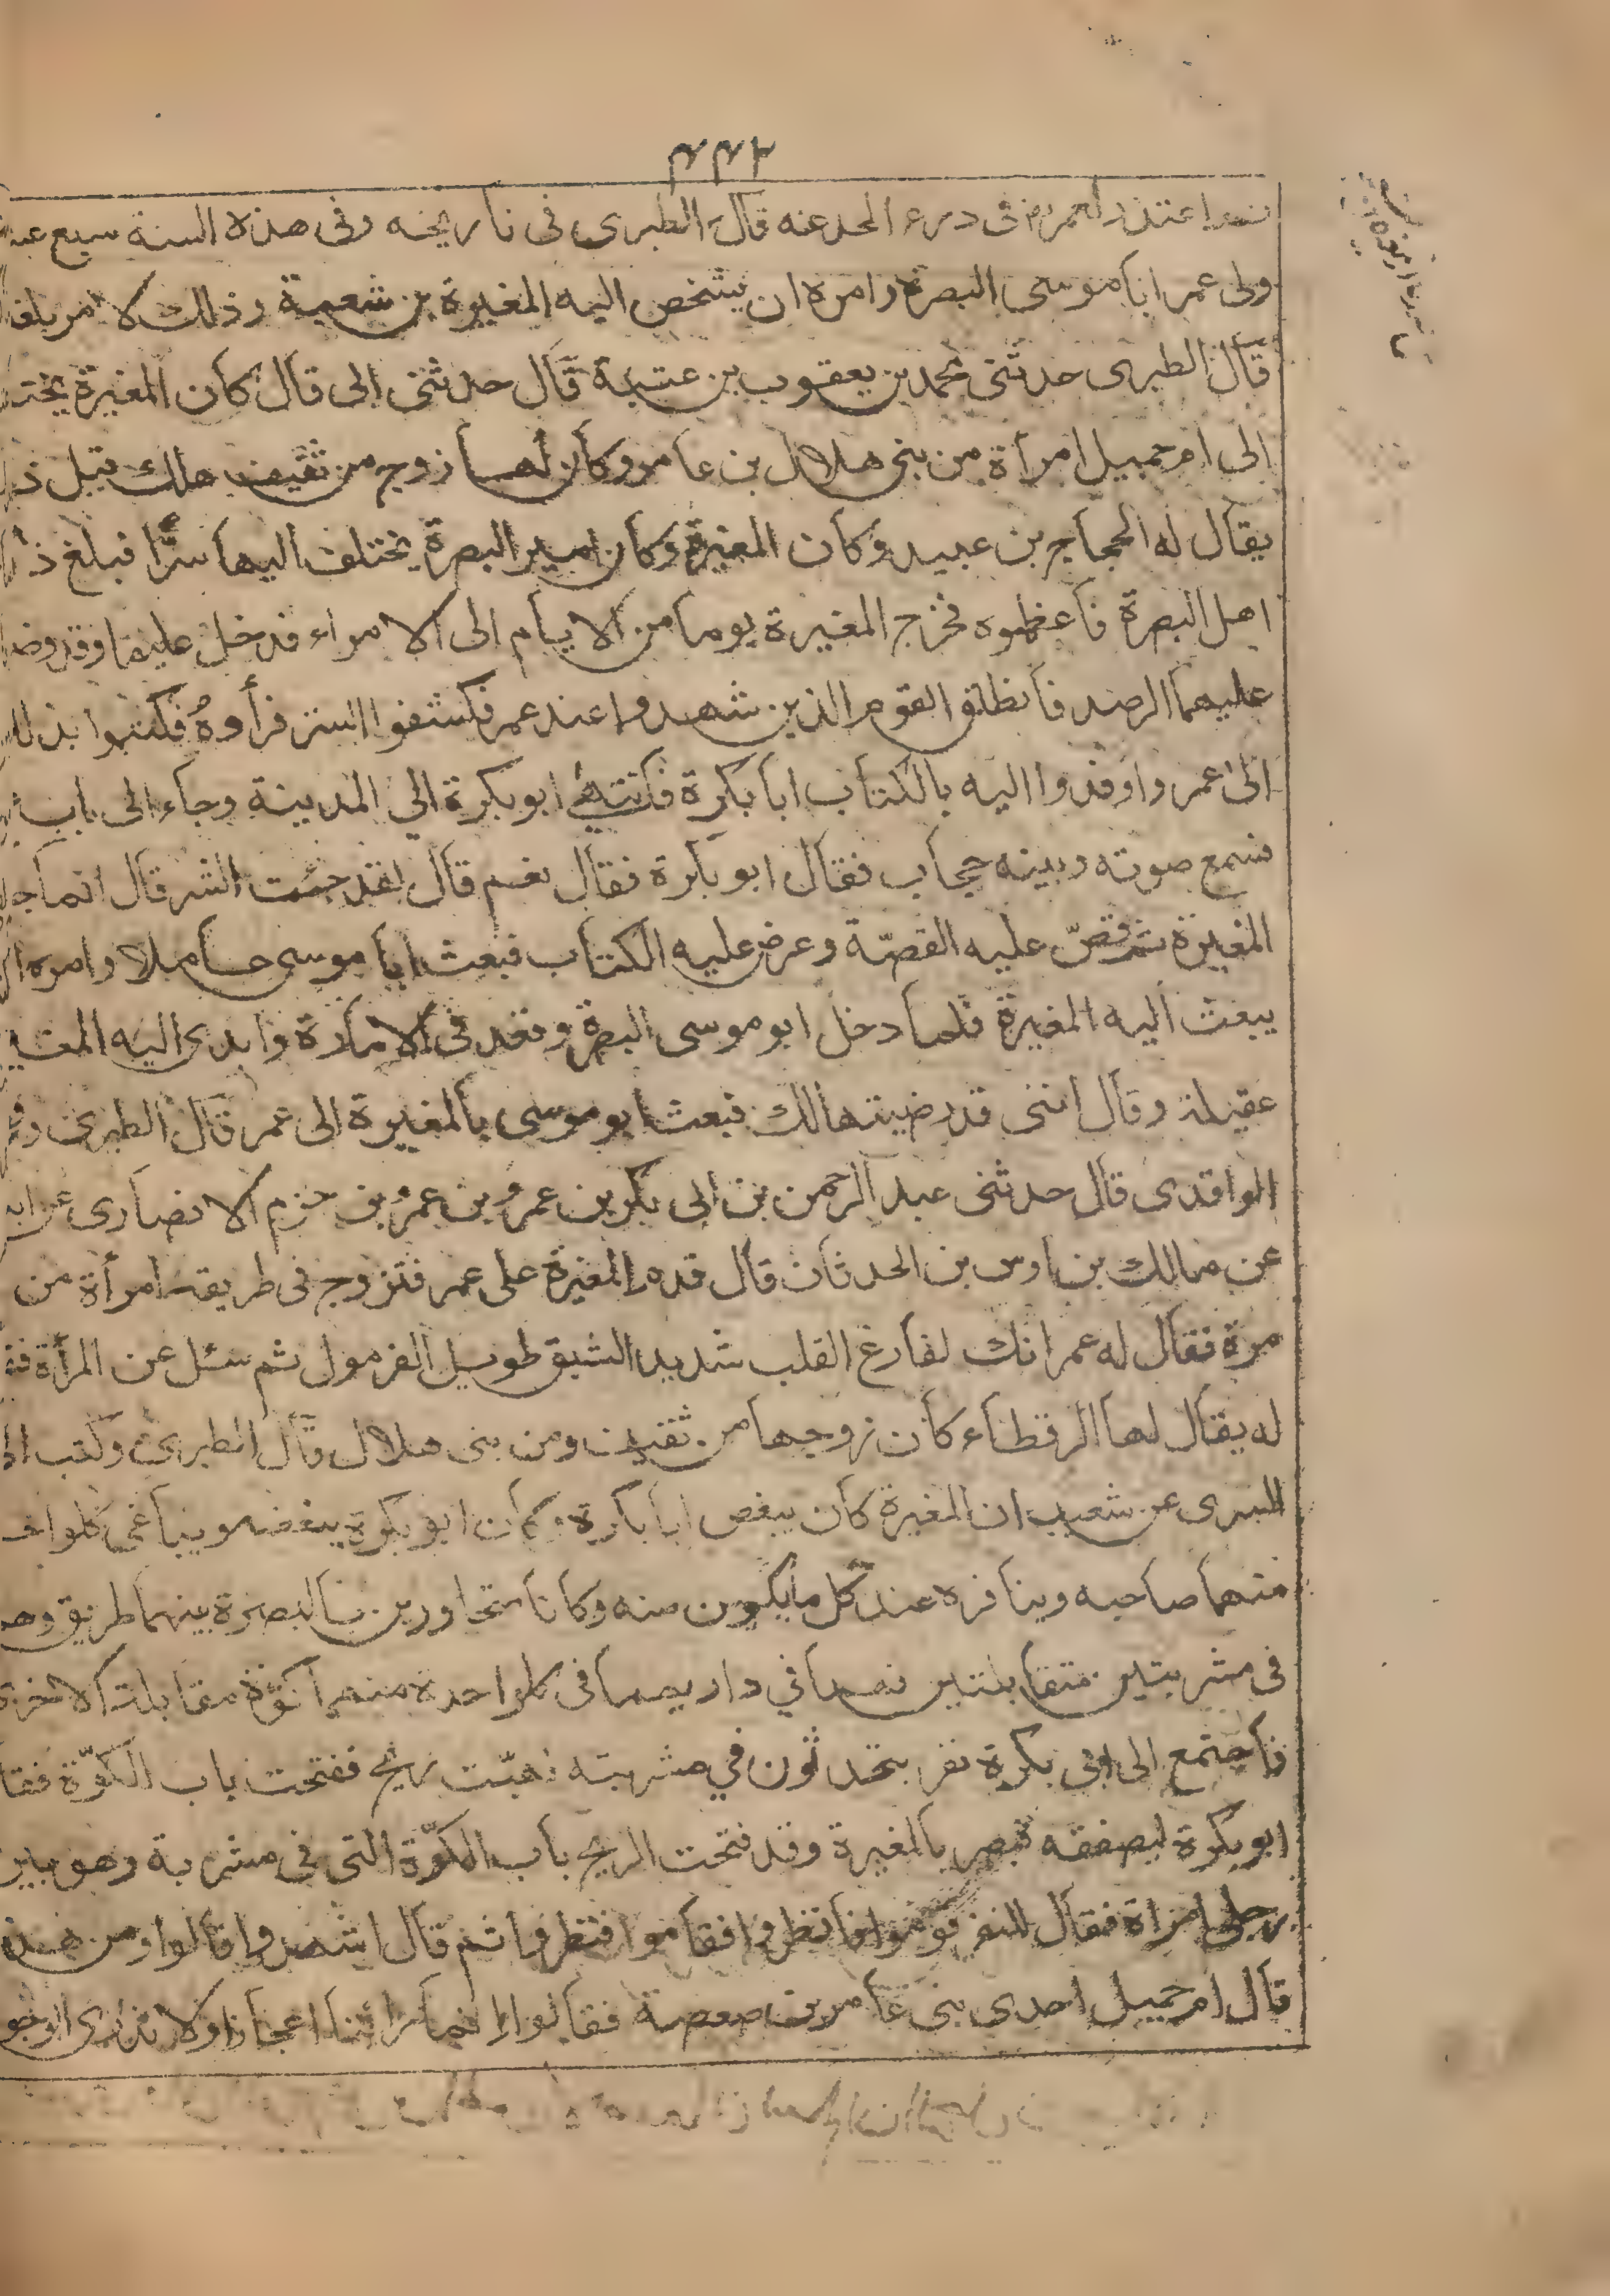 ٢٣٣
اعتذر لعمر فى درء الحد عنه قال الطبرى فى تاريخه وفى هذه السنة سبع عشـ
ولى عمر ابا موسى البصرة وامره ان يشخص اليه المغيرة بن شعبة وذلك لامر بلغه
قال الطبرى حدثنى محمد بن يعقوب بن عتبة قال حدثنى ابى قال كان المغيرة يختـ
الى ام جميل امرأة من بنى هلال بن عامر وكان لها زوج من ثقيف هلك قبل ذ
يقال له الحجاج بن عبيد وكان المغيرة وكان امير البصرة يختلف اليها سرًّا فبلغ ذ
اهل البصرة فاعظموه فخرج المغيرة يوما من الايام الى الامراء فدخل عليها وقد وضـ
عليهما الرصد فانطلق القوم الذين شهدوا عند عمر فكشفوا الستر فرأوهُ فكتبوا بذلك
الى عمر واوفدوا اليه بالكتاب ابا بكرة فانتهى ابو بكرة الي المدينة وجاء الى باب
فسمع صوته وبينه حجاب فقال ابو بكرة فقال نعم قال لقد جئت لشر قال انما جـ
المغيرة ثم قصّ عليه القصّة وعرض عليه الكتاب فبعث ابا موسى حاملا وامره ان
يبعث اليه المغيرة فلما دخل ابو موسى البصرة وقعد فى الامارة واهدى اليه المغيـ
عقيلة وقال اننى قد رضيتها لك فبعث ابو موسى بالمغيرة الى عمر قال الطبرى و
الواقدى قال حدثنى عبد الرحمن بن ابى بكر بن عمرو بن عمر بن حزم الانصارى عن ابيه
عن مالك بن اوس بن الحدثان قال قدم المغيرة على عمر فتزوج فى طريقه امرأة من
مرة فقال له عمر انك لفارغ القلب شديد الشبق طويل الغرمول ثم سئل عن المرأة فقـ
له يقال لها الرقطاء كان زوجها من ثقيف ومن بنى هلال قال الطبرى وكتب الى
السرى عن شعيب ان المغيرة كان يبغض ابا بكرة وكان ابو بكرة يبغضه ويباغى كلواحد
منهما صاحبه وينافره عند كل ما يكون منه وكانا متجاورين بالبصرة بينهما طريق وهـ
فى مشربتين متقابلتين فهما في داريهما فى كلواحدة منهما كوّة مقابلة الاخرى
فاجتمع الى ابى بكرة نفر يتحدثون في مشربته فهبّت ريح ففتحت باب الكوّة فقا
ابو بكرة ليصفقه فبصر بالمغيرة وقد فتحت الريح باب الكوّة التى فى مشربة وهو بين
رجلى امرأة فقال للنفر قوموا فانظروا فقاموا فنظروا ثم قال اشهدوا قالوا ومن هذه
قال ام جميل احدى بنى عامر بن صعصة فقالوا انما رائنا اعجازا ولا ندرى الوجو